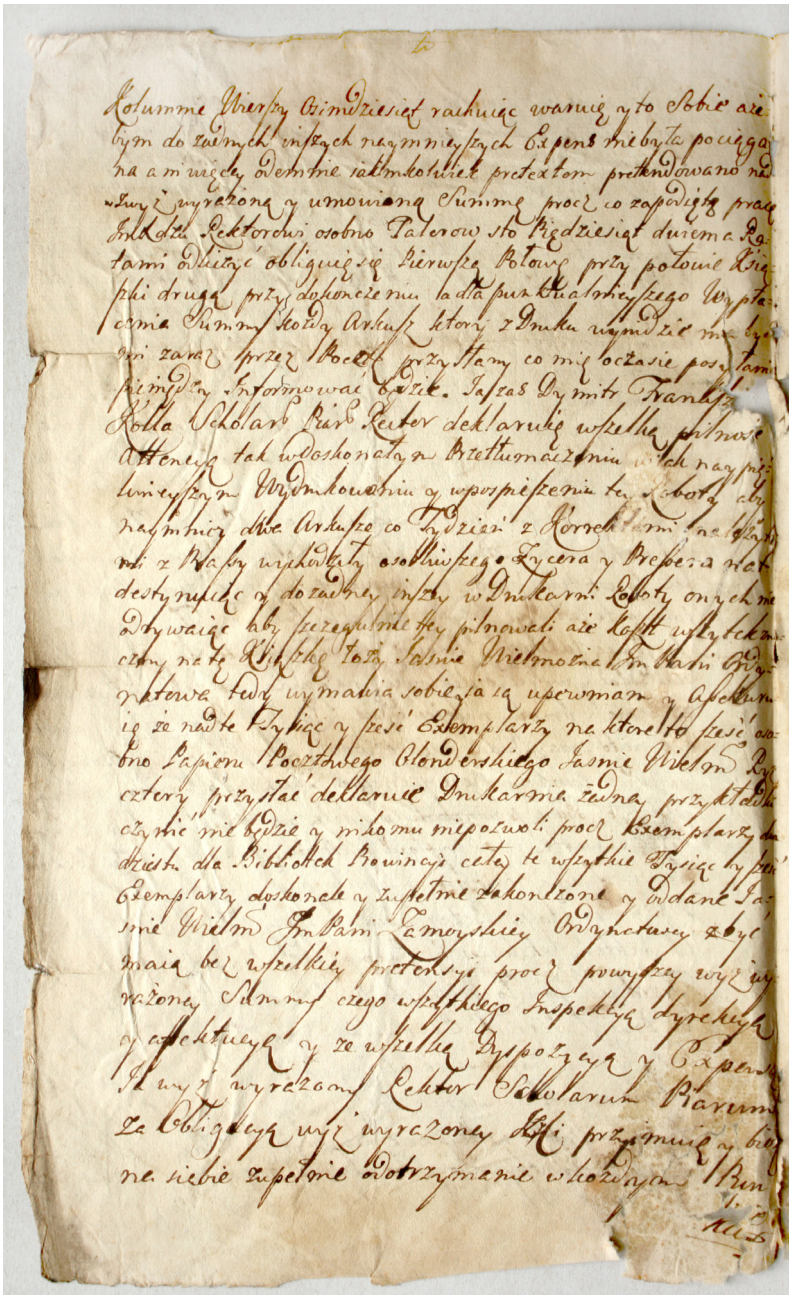 Kolumnie Wierszy Osimdziesiąt rachuiąc waruię y to Sobie aże
bym do żadnych inszych naymnieyszych Expens niebyła pociąga
na ani więcey odemnie iakimkolwiek pretextem pretendowano nad
wzwyż wyrażoną y umowioną Summę procz co zapodiętą pracę
Rektorowi osobno Talerow sto Piędziesiąt dwiema Ra
tami odliczyć obliguię się Pierwszą Połowę przy połowie Xią
szki drugą przy dokonczeniu a dla punktualnieyszego Wypła
cenia Summy kożdy Arkusz ktory z Druku wynidzie ma być
mi zaraz przez Pocztę przysłany co mię oczasie posyłania
pieniędzy Informować będzie. Ja zaś Dymitr Franciszek
Kolla Scholar Piar Rektor deklaruię wszelką pilność
Attencyą tak w doskonałym Przetłumaczeniu iak nay pię
knieyszym Wydrukowaniu y w pospieszeniu tey Roboty aby
naymniey dwa Arkusze co Tydzień z Korrekturami należyty
mi z Prassy wychodziły osobliwszego Zycera y Pressera na to
destynuiąc y do żadney inszey w Drukarni Roboty onych nie
odrywaiąc aby szczegulnie tey pilnowali aże koszt
czony na tę Xiąszkę łoży Jaśnie Wielmożna Jm Pani Ordy
natowa tedy wymawia sobie ja ią upewniam y Assekuru
ię że nad te Tysiąc y sześć Exemplarzy na ktore to sześć oso
bno Papieru Pocztowego Olenderskiego Jaśnie Wielm Ryz
cztery przysłać deklaruie Drukarnia żadney przykładki
czynić nie będzie y nikomu niepozwoli procz Exemplarzy dwa
dziestu dla Bibliotek Prowincyi całey te wszytkie Tysiąc y sześć
Exemplarzy doskonale y zupełnie zakonczone y oddane Ja
śnie Wielm Jm Pani Zamoyskiey Ordynatowey być
maią bez wszelkiey pretensyi procz powyższey wyż wy
rażoney Summy czego wszytkiego Inspekcyą dyrekcyą
y y ze wszelką Dyspozycyą y Expensą
Ja wyż wyrażony Rektor Scholarum Piarum
za Obligacyą wyż wyrażoney przyimuię y biorę
na siebie zupełnie o dotrzymanie w kożdym Pun